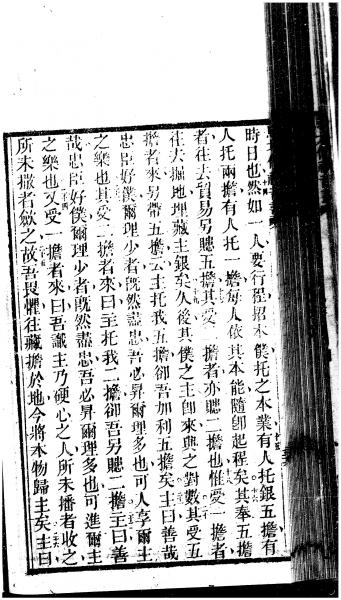 時日也然如一人要行程招本僕托之本業有人托銀五擔有
人托兩擔有人托一擔每人依其本能隨卽起程矣其奉五擔
者往去貿易另聽五擔其受二擔者亦聽二擔也惟受一擔者
往去掘地理藏主銀矣久後其僕之主卽來與之對數其受五
擔者來另帶五擔云主托我五擔卻吾加利五擔矣主曰善哉
忠臣好僕爾理少者旣然盡忠吾必昇爾理多也可入享爾主
之樂也其受二擔者來曰主托我二擔卻吾另聽二擔主曰善
哉忠臣好僕爾理少者旣然盡忠吾必昇爾理多也可進爾主
之樂也又受一擔者來曰吾識主乃硬心之人所未播者收之
所未撒者斂之故吾畏懼往藏擔於地今將本物歸主矣主曰